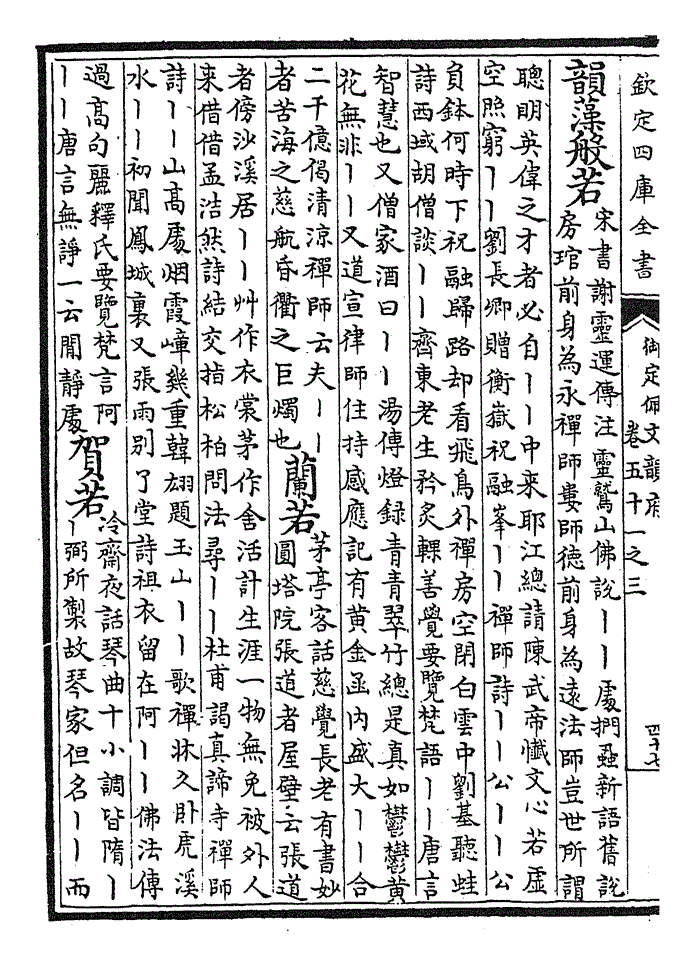 欽定四庫全書
御定佩文韻府
卷五十一之三
四十七
韻藻般若
宋書謝靈運傳注靈鷲山佛說丨丨處捫蝨新語舊說
房琯前身為永禪師婁師徳前身為遠法師豈世所謂
聰明英偉之才者必自丨丨中来耶江總請陳武帝懺文心若虚
空照窮丨丨劉長卿贈衡嶽祝融峯丨丨禪師詩丨丨公丨丨公
負鉢何時下祝融歸路却看飛鳥外禪房空閉白雲中劉基聽蛙
詩西域胡僧談丨丨齊東老生矜炙輠善覺要覽梵語丨丨唐言
智慧也又僧家酒曰丨丨湯傳燈録青青翠竹總是真如鬱鬱黄
花無非丨丨又道宣律師住持感應記有黄金函内盛大丨丨合
二千億偈清涼禪師云夫丨丨
者苦海之慈航昏衢之巨燭也
蘭若
茅亭客話慈覺長老有書妙
圓塔院張道者屋壁云張道
者傍沙溪居丨丨艸作衣裳茅作舍活計生涯一物無免被外人
来借借孟浩然詩結交指松柏問法尋丨丨杜甫謁真諦寺禪師
詩丨丨山髙處烟霞嶂幾重韓翃題玉山丨丨歌禪牀久卧虎溪
水丨丨初聞鳳城裏又張雨别了堂詩祖衣留在阿丨丨佛法傳
過髙句麗釋氏要覽梵言阿
丨丨唐言無諍一云閒靜處
賀若
冷齋夜話琴曲十小調皆隋丨
丨弼所製故琴家但名丨丨而